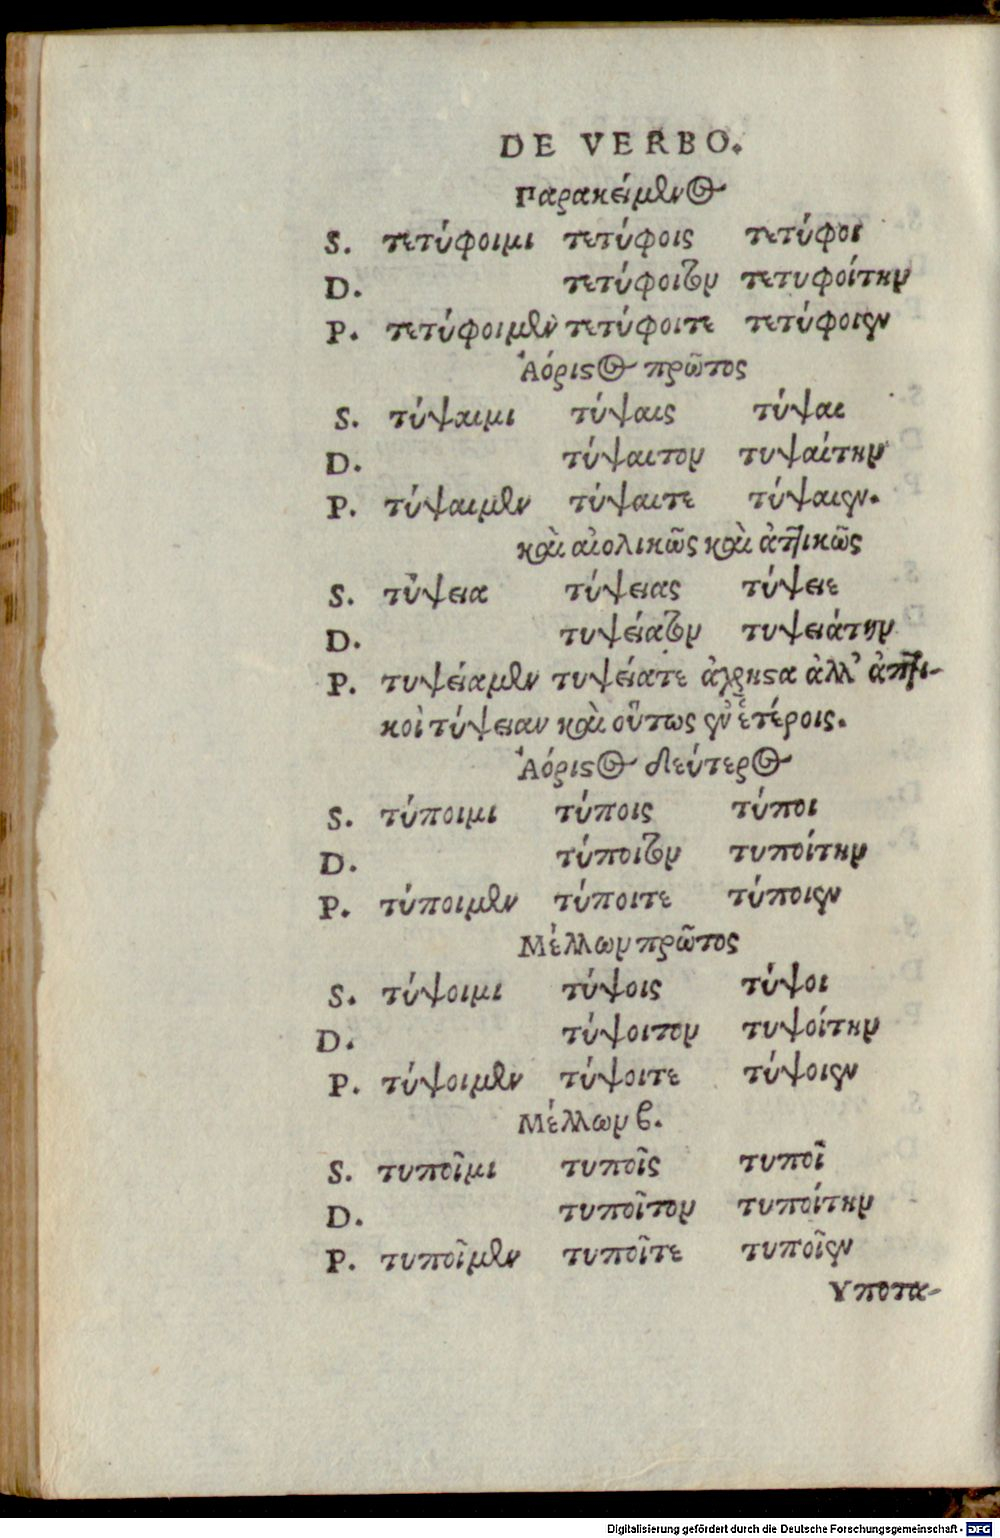 DE VERBO.
Παρακείμενος
S. τετύφοιμι τετύφοις τετύφοι
D. τετύφοιτον τετυφοίτην
P. τετύφοιμεν τετύφοιτε τετύφοιεν
Ἀόριστος πρῶτος
S. τύψαιμι τύψαις τύψαι
D. τύψαιτον τυψαίτην
P. τύψαιμεν τύψαιτε τύψαιεν.
καὶ αἰολικῶς καὶ ἀττικῶς
S. τύψεια τύψειας τύψειε
D. τυψείατον τυψειάτην
P. τυψείαμεν τυψείατε ἀχρηστα ἀλλ' ἀττι-
κοὶ τύψειαν καὶ οὕτως ἐν ἑτέροις.
Ἀόριστος δεύτερος
S. τύποιμι τύποις τύποι
D. τύποιτον τυποίτην
P. τύποιμεν τύποιτε τύποιεν
Μέλλων πρῶτος
S. τύψοιμι τύψοις τύψοι
D. τύψοιτον τυψοίτην
P. τύψοιμεν τύψοιτε τύψοιεν
Μέλλων β.
S. τυποῖμι τυποῖς τυποῖ
D. τυποῖτον τυποίτην
P. τυποῖμεν τυποῖτε τυποῖεν
Υποτα-
Digitalisierung gefördert durch die Deutsche Forschungsgemeinschaft - DFG